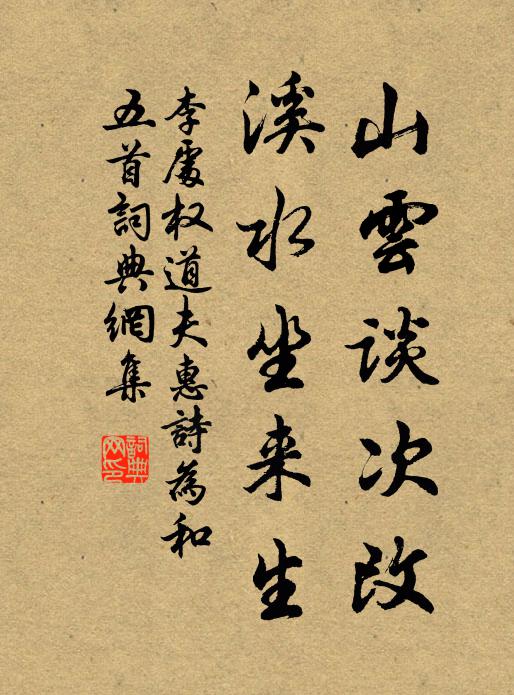 山雲談次改
溪水坐来生
李處权道夫惠詩為和
五首詞典網集
詞典
网印